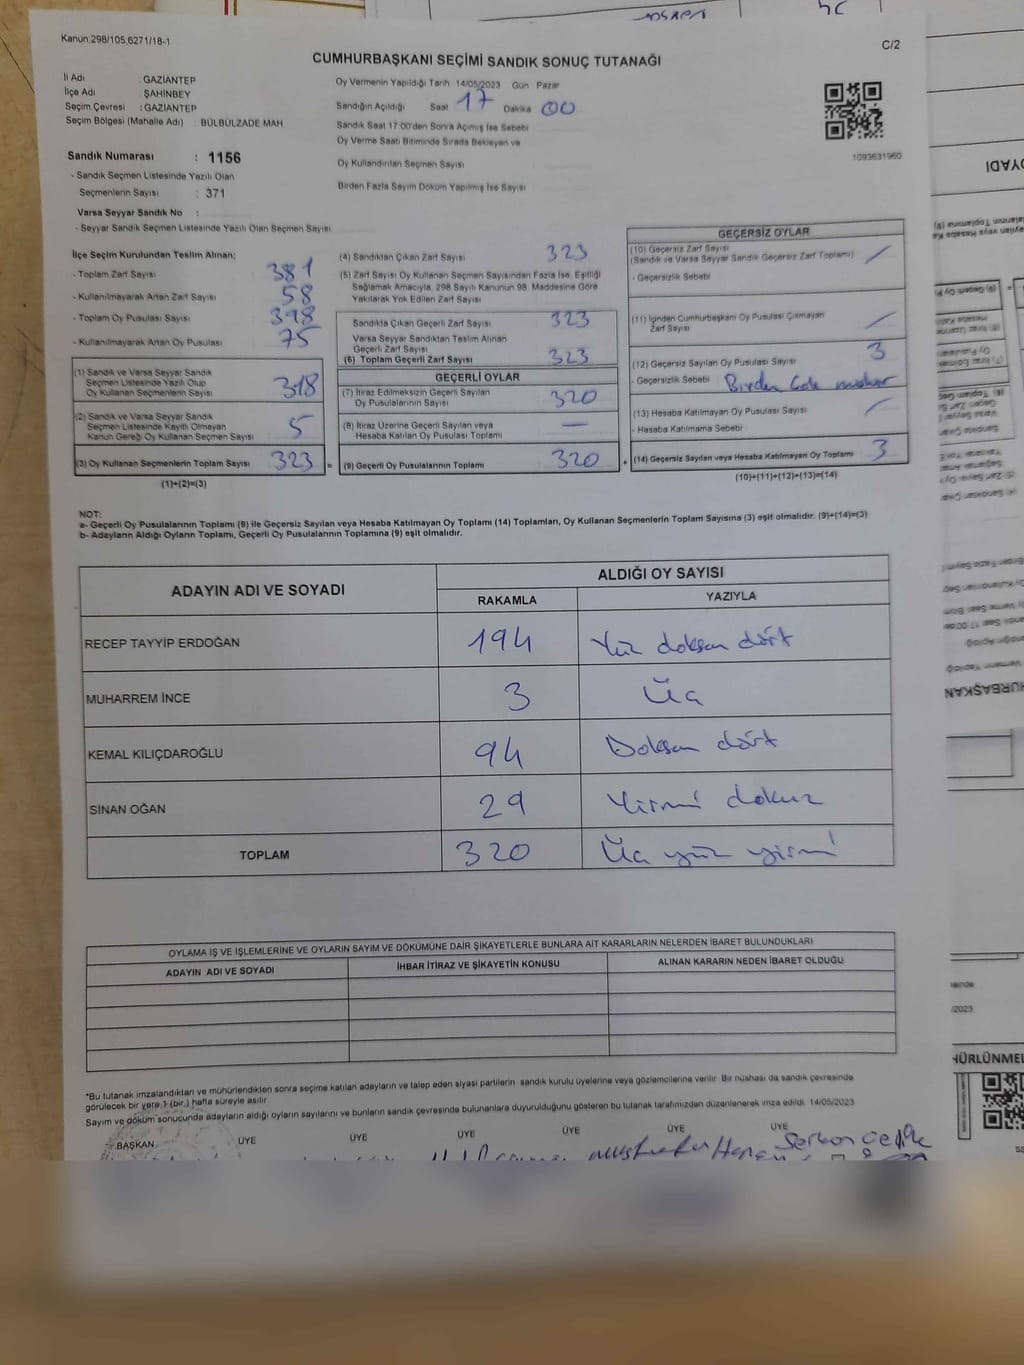 Kanun:298/105,6271/18-1
C/2
CUMHURBAŞKANI SEÇİMİ SANDIK SONUÇ TUTANAĞI
İl Adı GAZİANTEP
İlçe Adı ŞAHİNBEY
Seçim Çevresi : GAZİANTEP
Seçim Bölgesi (Mahalle Adı) : BÜLBÜLZADE MAH
Oy Vermenin Yapıldığı Tarih 14/05/2023 Gün Pazar
Sandığın Açıldığı Saat 17 Dakika 00
Sandık Saat 17:00'den Sonra Açılmış İse Sebebi
Oy Verme Saati Bitiminde Sırada Bekleyen ve
Oy Kullandırılan Seçmen Sayısı
Birden Fazla Sayım Döküm Yapılmış İse Sayısı
1093631960
Sandık Numarası : 1156
- Sandık Seçmen Listesinde Yazılı Olan
Seçmenlerin Sayısı : 371
Varsa Seyyar Sandık No :
- Seyyar Sandık Seçmen Listesinde Yazılı Olan Seçmen Sayısı
İlçe Seçim Kurulundan Teslim Alınan;
- Toplam Zarf Sayısı 381
- Kullanılmayarak Artan Zarf Sayısı 58
- Toplam Oy Pusulası Sayısı 398
- Kullanılmayarak Artan Oy Pusulası 75
(1) Sandık ve Varsa Seyyar Sandık
Seçmen Listesinde Yazılı Olup
Oy Kullanan Seçmenlerin Sayısı 318
(2) Sandık ve Varsa Seyyar Sandık
Seçmen Listesinde Kayıtlı Olmayan
Kanun Gereği Oy Kullanan Seçmen Sayısı 5
(3) Oy Kullanan Seçmenlerin Toplam Sayısı 323 =
(1)+(2)=(3)
(4) Sandıktan Çıkan Zarf Sayısı 323
(5) Zarf Sayısı Oy Kullanan Seçmen Sayısından Fazla İse, Eşitliği
Sağlamak Amacıyla, 298 Sayılı Kanunun 98. Maddesine Göre
Yakılarak Yok Edilen Zarf Sayısı
Sandıkta Çıkan Geçerli Zarf Sayısı 323
Varsa Seyyar Sandıktan Teslim Alınan
Geçerli Zarf Sayısı
(6) Toplam Geçerli Zarf Sayısı 323
GEÇERLİ OYLAR
(7) İtiraz Edilmeksizin Geçerli Sayılan
Oy Pusulalarının Sayısı 320
(8) İtiraz Üzerine Geçerli Sayılan veya
Hesaba Katılan Oy Pusulası Toplamı —
(9) Geçerli Oy Pusulalarının Toplamı 320 +
GEÇERSİZ OYLAR
(10) Geçersiz Zarf Sayısı
(Sandık ve Varsa Seyyar Sandık Geçersiz Zarf Toplamı) /
- Geçersizlik Sebebi
(11) İçinden Cumhurbaşkanı Oy Pusulası Çıkmayan
Zarf Sayısı /
(12) Geçersiz Sayılan Oy Pusulası Sayısı 3
- Geçersizlik Sebebi Birden
(13) Hesaba Katılmayan Oy Pusulası Sayısı /
- Hesaba Katılmama Sebebi
(14) Geçersiz Sayılan veya Hesaba Katılmayan Oy Toplamı 3
(10)+(11)+(12)+(13)=(14)
NOT:
a- Geçerli Oy Pusulalarının Toplamı (9) ile Geçersiz Sayılan veya Hesaba Katılmayan Oy Toplamı (14) Toplamları, Oy Kullanan Seçmenlerin Toplam Sayısına (3) eşit olmalıdır. (9)+(14)=(3)
b- Adayların Aldığı Oyların Toplamı, Geçerli Oy Pusulalarının Toplamına (9) eşit olmalıdır.
ADAYIN ADI VE SOYADI
ALDIĞI OY SAYISI
RAKAMLA YAZIYLA
RECEP TAYYİP ERDOĞAN 194 Yüz doksan dört
MUHARREM İNCE 3 Üç
KEMAL KILIÇDAROĞLU 94 Doksan dört
SİNAN OĞAN 29 Yirmi dokuz
TOPLAM 320 Üç yüz yirmi
OYLAMA İŞ VE İŞLEMLERİNE VE OYLARIN SAYIM VE DÖKÜMÜNE DAİR ŞİKAYETLERLE BUNLARA AİT KARARLARIN NELERDEN İBARET BULUNDUKLARI
ADAYIN ADI VE SOYADI İHBAR İTİRAZ VE ŞİKAYETİN KONUSU ALINAN KARARIN NEDEN İBARET OLDUĞU
*Bu tutanak imzalandıktan ve mühürlendikten sonra seçime katılan adayların ve talep eden siyasi partilerin sandık kurulu üyelerine veya gözlemcilerine verilir. Bir nüshası da sandık çevresinde
görülecek bir yere 1 (bir) hafta süreyle asılır.
Sayım ve döküm sonucunda adayların aldığı oyların sayılarını ve bunların sandık çevresinde bulunanlara duyurulduğunu gösteren bu tutanak tarafımızdan düzenlenerek imza edildi. 14/05/2023
BAŞKAN ÜYE ÜYE ÜYE ÜYE ÜYE ÜYE